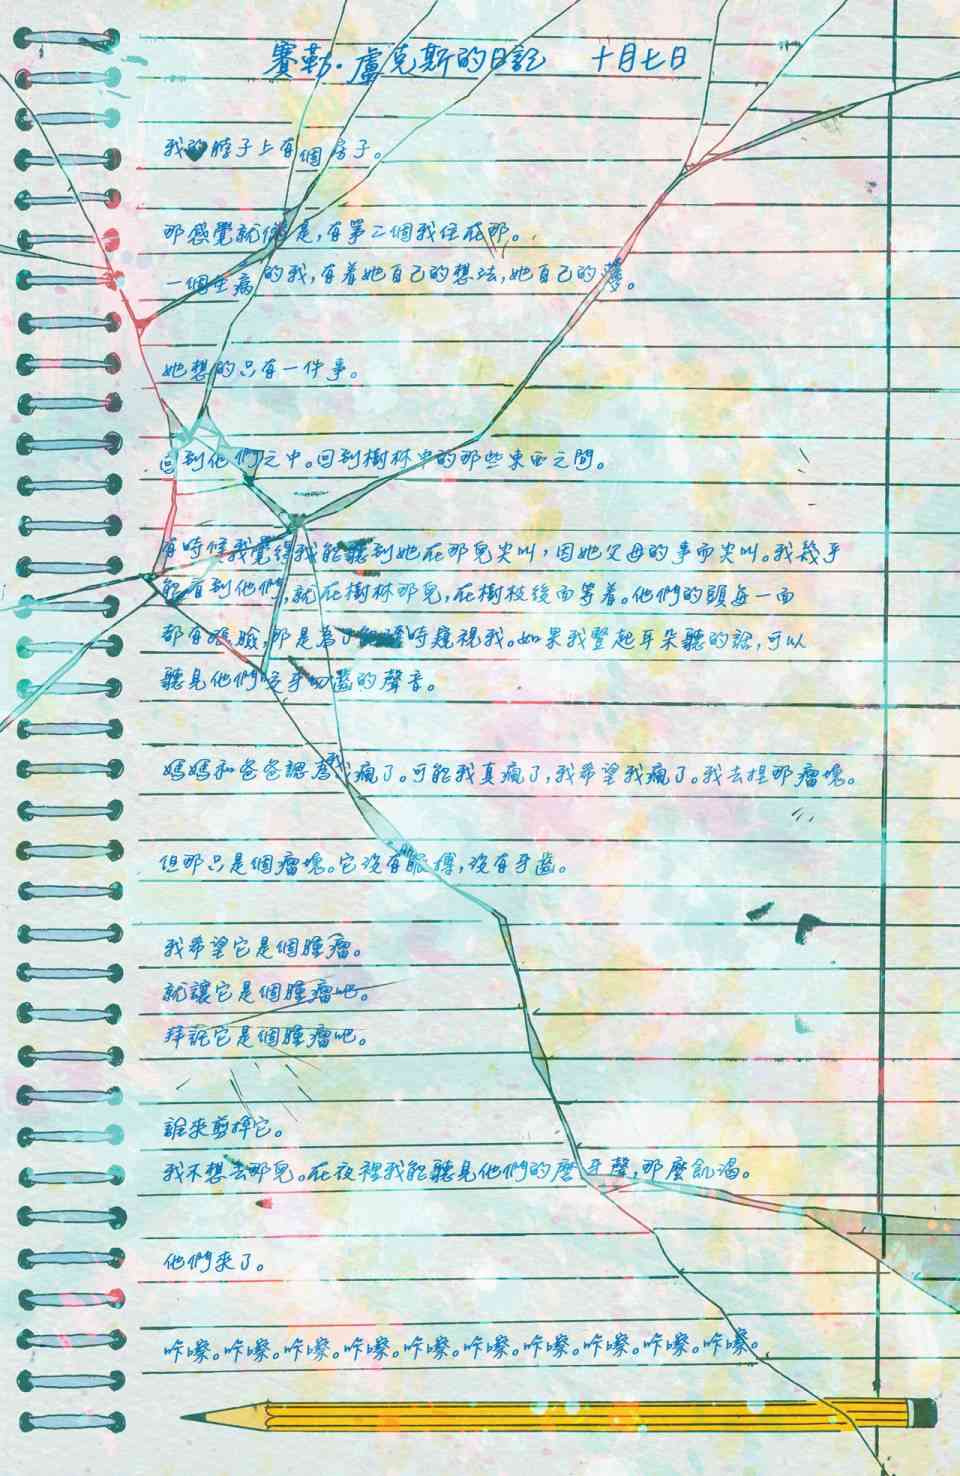 賽勒·盧克斯的日記 十月七日
我的脖子上有個房子。
那感覺就像是,有第二個我住在那。
一個生病的我,有着她自己的想法,她自己的夢。
她想的只有一件事。
回到他們之中。回到樹林中的那些東西之間。
有時候我覺得我能聽到她在那兒尖叫,因她父母的事而尖叫。我幾乎
能看到他們,就在樹林那兒,在樹枝後面等着。他們的頭每一面
都有張臉,那是為了能隨時窺視我。如果我豎起耳朵聽的話,可以
聽見他們咬牙切齒的聲音。
媽媽和爸爸認為我瘋了。可能我真瘋了,我希望我瘋了。我去捏那瘤塊。
但那只是個瘤塊。它沒有眼睛,沒有牙齒。
我希望它是個腫瘤。
就讓它是個腫瘤吧。
拜託它是個腫瘤吧。
誰來剪掉它。
我不想去那兒。在夜裡我能聽見他們的磨牙聲,那麼飢渴。
他們來了。
咔嚓。咔嚓。咔嚓。咔嚓。咔嚓。咔嚓。咔嚓。咔嚓。咔嚓。咔嚓。